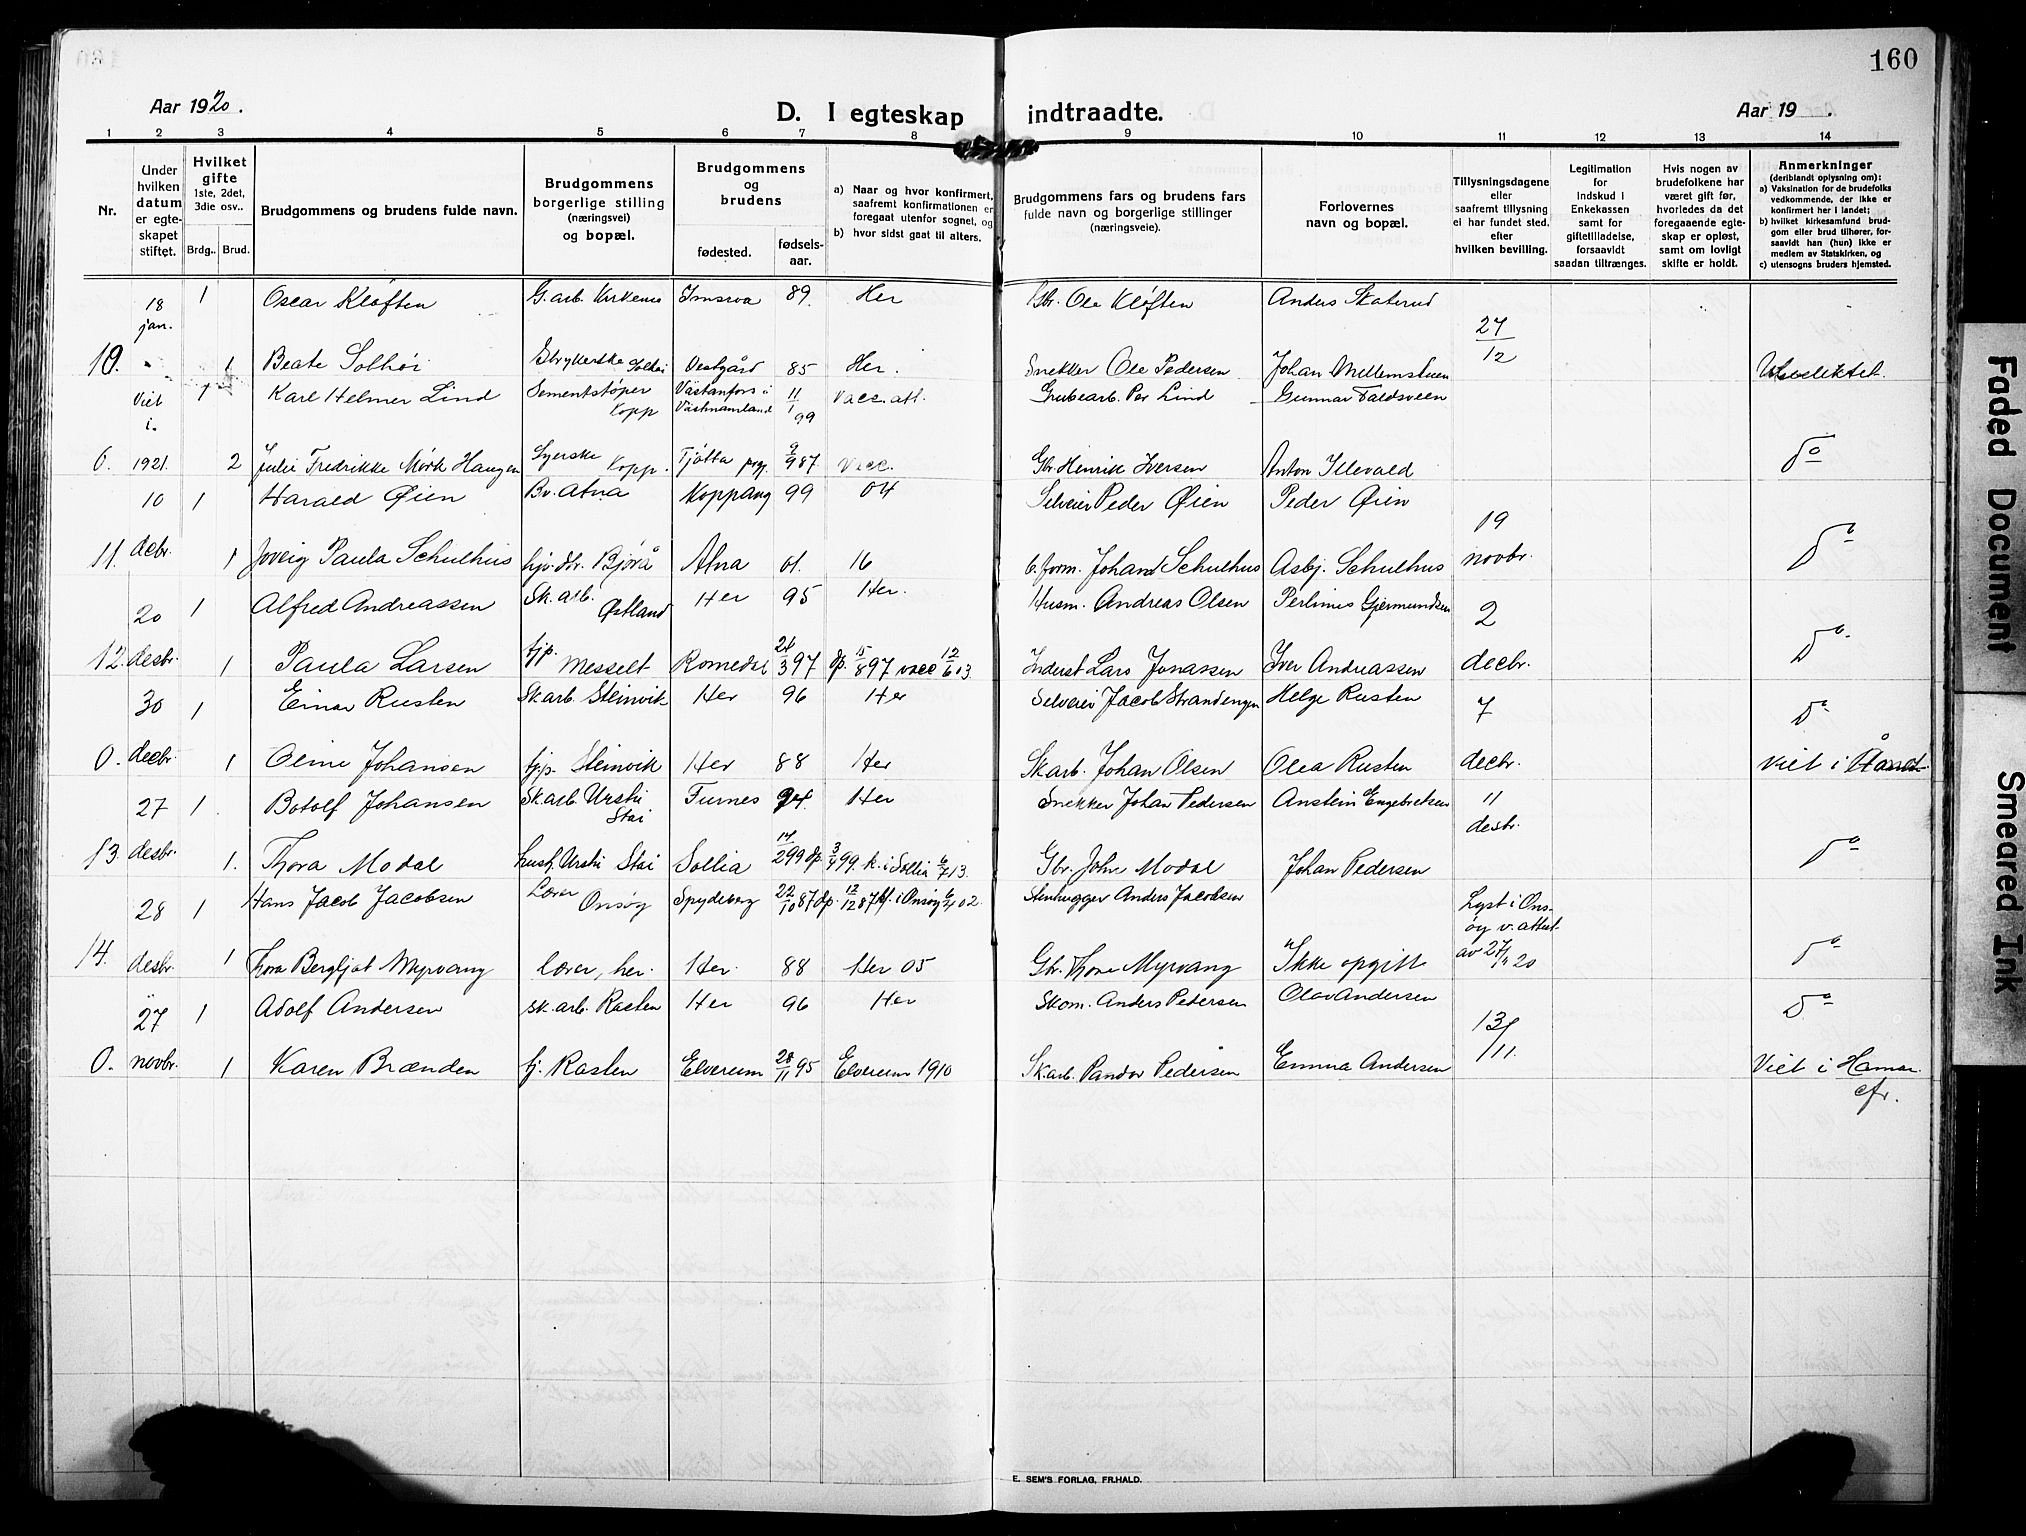 160
Aar 1920.
D. I egteskap indtraadte.
Aar 19 .
1 2 3 4 5 6 7 8 9 10 11 12 13 14
Nr.
Under hvilken datum er egte-skapet stiftet.
Hvilket gifte 1ste, 2det, 3die osv..
Brdg.. Brud.
Brudgommens og brudens fulde navn.
Brudgommens borgerlige stilling (næringsvei) og bopæl.
Brudgommens og brudens
fødested.
fødsels-aar.
a) Naar og hvor konfirmert, saafremt konfirmationen er foregaat utenfor sognet, og
b) hvor sidst gaat til alters.
Brudgommens fars og brudens fars fulde navn og borgerlige stillinger (næringsveie).
Forlovernes navn og bopæl.
Tillysningsdagene eller saafremt tillysning ei har fundet sted, efter hvilken bevilling.
Legitimation for Indskud i Enkekassen samt for giftetilladelse, forsaavidt saadan tiltrænges.
Hvis nogen av brudefolkene har været gift før, hvorledes da det foregaaende egte-skap er opløst, samt om lovligt skifte er holdt.
Anmerkninger (deriblandt oplysning om):
a) Vaksination for de brudefolks vedkommende, der ikke er konfirmert her i landet;
b) hvilket kirkesamfund brud-gom eller brud tilhører, for-saavidt han (hun) ikke er medlem av Statskirken, og
c) utensogns bruders hjemsted.
18 jan. 1 Oscar Kløften G.arb. Kirkenes Imsroa 89. Her Gbr. Ole Kløften Anders Skaterud 27/12
10. 1 Beate Solhøi Strykerske Solhøi Vestgård 85 Her. Snekker Ole Pedersen Johan Mellemstuen
Viet i. 1 Karl Helmer Lind Sementstøper Kopp Västanfors i Västmanland 11/1 99 Vacc.att. Grubearb. Per Lind Gunnar Faldsveen
0. 1921. 2 Julie Fredrikke Mørk Haugen Syerske Kopp. Tjøtta prgj. 9/9 87 Vacc. Gbr. Henrik Iversen Anton Illevold Do
10 1 Harald Øien Bv. Atna Koppang 99 04 Selveier Peder Øien Peder Øien 19
11. decbr. 1 Joveig Paula Schulhus hjv. dtr. Bjørå Atna 01. 16 b.form. Johan Schulhus Asbj. Schulhus novbr. Do
20 1 Alfred Andreassen Sk. arb. Østland Her 95 Her. Husm. Andreas Olsen Perlinus Gjermundsen 2
12. desbr. 1 Paula Larsen tjp. Messelt Romedal 24/3 97 dp. 15/8 97 vacc 12/6 13 Inderst Lars Jonassen Iver Andreassen decbr. Do
30 1 Einar Rusten Skarb. Steinvik Her 96 Her Selveier Jacob Strandengen Helge Rusten 7 Do
0. decbr. 1 Oline Johansen tjp. Steinvik Her 88 Her Skarb. Johan Olsen Olea Rusten decbr. Viet i
27 1. Botolf Johansen Sk.arb Urstri Stai Furnes 94. Her Snekker Johan Pedersen Anstein Engebretsen 11 desbr.
13. desbr. 1. Thora Modal hush. Urstri Stai Sollia 17/2 99 dp. 3/4 99. k. i Sollia 6/7 13. Gbr. John Modal Johan Pedersen Do
28 1 Hans Jacob Jacobsen Lærer Onsøy Spydeberg 22/10 87 dp. 12/12 87 kf. i Onsøy 02. Stenhugger Anders Jacobsen Lyst i Ons-
øy v. attest
14. desbr. 1 Thora Bergljot Myrvang lærer, her. Her. 88 Her 05 Gbr. Thore Myrvang "Ikke opgitt av 27/11 20 Do
27 1 Adolf Andersen sk. arb. Rasten Her 96 Her Skom. Anders Pedersen Olav Andersen 13/11. Do
0. novbr. 1 Karen Brænden tj. Rasten Elverum 28/11 95 Elverum 1910 Skarb. Pandor Pedersen Emma Andersen Viet i Hamar
cfr.
E. SEM'S FORLAG, FR.HALD.
Faded Document
Smeared Ink